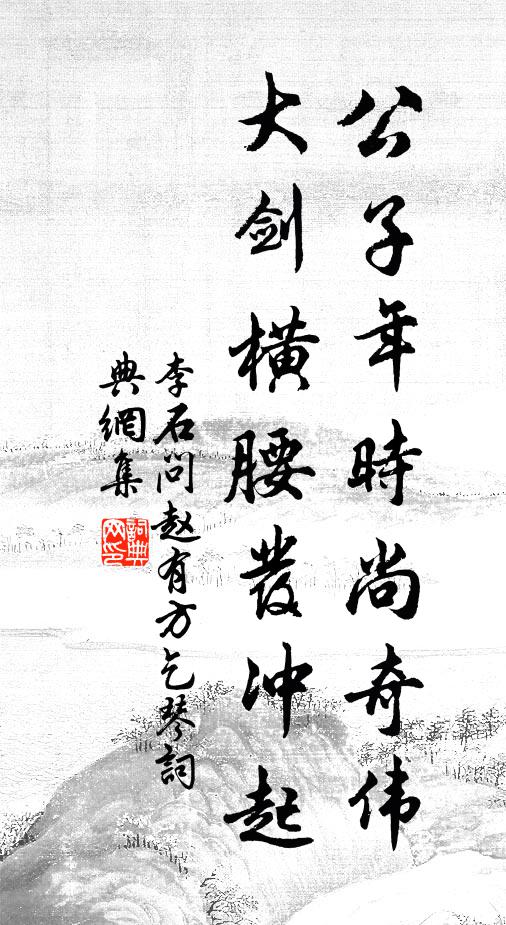 公子年時尚奇伟
大剑橫腰发冲起
李石问赵有方乞琴詞
典網集
詞典网印